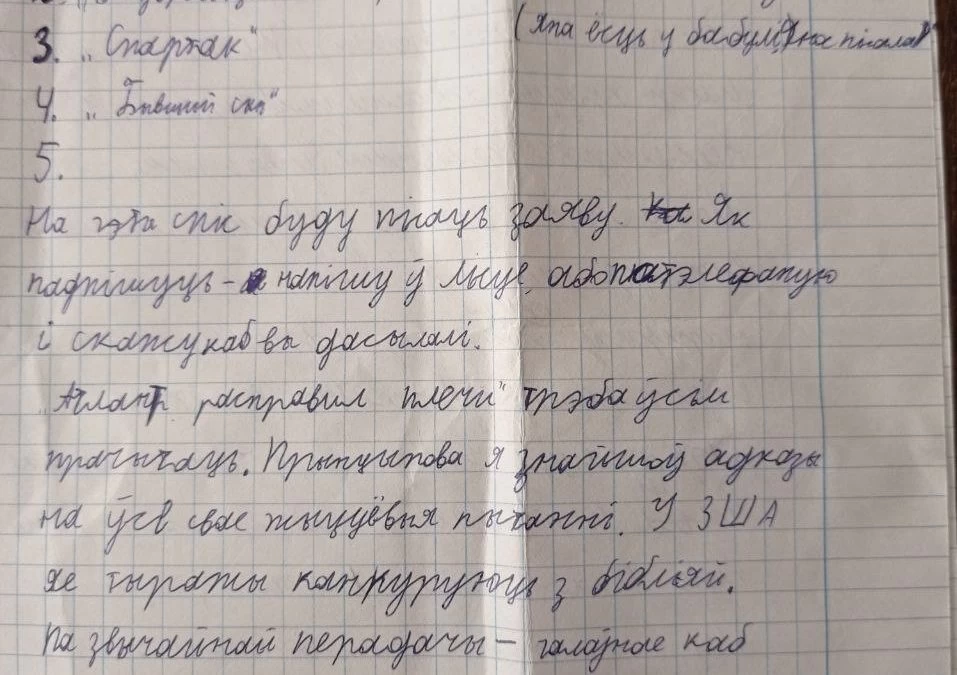 3. „Спартак" (Яна ёсць у бабулі) яна пісала)
4. „Бывший сын"
5.
На гэты спіс буду пісаць заяву. Як
падпішуць – напішу ў лісце, або патэлефаную
і скажу каб вы дасылалі.
„Атлант расправил плечи" трэба ўсім
прачытаць. Прынцыпова я знайшоў адказы
на ўсе свае жыццёвыя пытанні. У ЗША
яе тыражы канкуруюць з бібліяй.
Па звычайнай перадачы – галоўнае каб